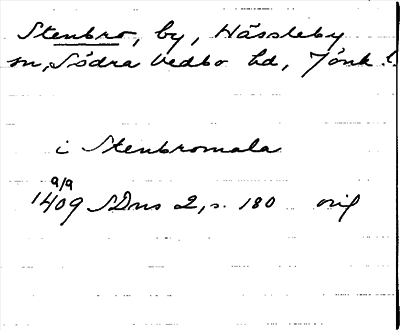 Stenbro, by, Hässleby
sn, Södra Vedbo hd, Jönk. l.
i Stenbromala
9/9
1409 SDns 2, s. 180 orig